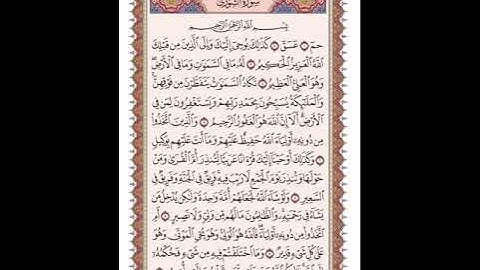 سُورَةُ الشُّورَىٰ
بِسْمِ اللَّهِ الرَّحْمَٰنِ الرَّحِيمِ
حمٓ ۝ عٓسٓقٓ ۝ كَذَٰلِكَ يُوحِيٓ إِلَيْكَ وَإِلَى الَّذِينَ مِن قَبْلِكَ
اللَّهُ الْعَزِيزُ الْحَكِيمُ ۝ لَهُۥ مَا فِي السَّمَٰوَٰتِ وَمَا فِي الْأَرْضِ
وَهُوَ الْعَلِيُّ الْعَظِيمُ ۝ تَكَادُ السَّمَٰوَٰتُ يَتَفَطَّرْنَ مِن فَوْقِهِنَّ
وَالْمَلَٰٓئِكَةُ يُسَبِّحُونَ بِحَمْدِ رَبِّهِمْ وَيَسْتَغْفِرُونَ لِمَن فِي
الْأَرْضِ أَلَآ إِنَّ اللَّهَ هُوَ الْغَفُورُ الرَّحِيمُ ۝ وَالَّذِينَ اتَّخَذُوا
مِن دُونِهِۦٓ أَوْلِيَآءَ اللَّهُ حَفِيظٌ عَلَيْهِمْ وَمَآ أَنتَ عَلَيْهِم بِوَكِيلٍ
۝ وَكَذَٰلِكَ أَوْحَيْنَآ إِلَيْكَ قُرْءَانًا عَرَبِيًّا لِّتُنذِرَ أُمَّ الْقُرَىٰ وَمَنْ
حَوْلَهَا وَتُنذِرَ يَوْمَ الْجَمْعِ لَا رَيْبَ فِيهِ فَرِيقٌ فِي الْجَنَّةِ وَفَرِيقٌ فِي
السَّعِيرِ ۝ وَلَوْ شَآءَ اللَّهُ لَجَعَلَهُمْ أُمَّةً وَٰحِدَةً وَلَٰكِن يُدْخِلُ مَن
يَشَآءُ فِي رَحْمَتِهِۦ وَالظَّٰلِمُونَ مَا لَهُم مِّن وَلِيٍّ وَلَا نَصِيرٍ ۝ أَمِ
اتَّخَذُوا مِن دُونِهِۦٓ أَوْلِيَآءَ فَاللَّهُ هُوَ الْوَلِيُّ وَهُوَ يُحْيِ الْمَوْتَىٰ وَهُوَ
عَلَىٰ كُلِّ شَيْءٍ قَدِيرٌ ۝ وَمَا اخْتَلَفْتُمْ فِيهِ مِن شَيْءٍ فَحُكْمُهُۥٓ